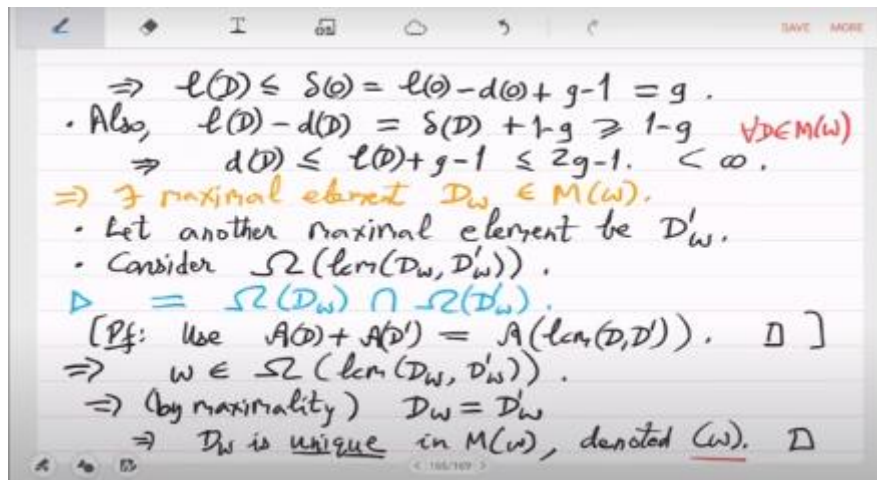 SAVE MORE
⇒ ℓ(D) ≤ δ(0) = ℓ(0) - d(0) + g-1 = g.
· Also, ℓ(D) - d(D) = δ(D) + 1-g ≥ 1-g ∀D∈M(ω)
⇒ d(D) ≤ ℓ(D) + g-1 ≤ 2g-1. < ∞.
⇒ ∃ maximal element D_ω ∈ M(ω).
· Let another maximal element be D'_ω.
· Consider Ω(lcm(D_ω, D'_ω)).
▷ = Ω(D_ω) ∩ Ω(D'_ω).
[Pf: Use A(D) + A(D') = A(lcm(D,D')). □ ]
⇒ ω ∈ Ω(lcm(D_ω, D'_ω)).
⇒ (by maximality) D_ω = D'_ω
⇒ D_ω is unique in M(ω), denoted (ω). □